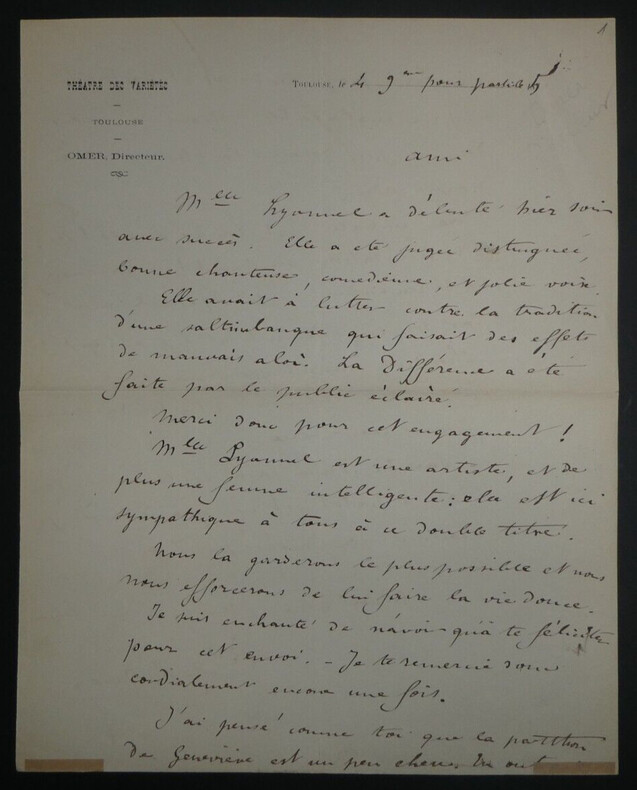 1
THÉATRE DES VARIÉTÉS
TOULOUSE
OMER, Directeur.
TOULOUSE, le 4 9bre
ami
Melle Lyonnel a débuté hier soir
avec succès. Elle a été jugée distinguée,
bonne chanteuse, comédienne, et jolie voix.
Elle avait à lutter contre la tradition
d'une saltimbanque qui faisait des effets
de mauvais aloi. La Différence a été
faite par le public éclairé.
Merci donc pour cet engagement !
Melle Lyonnel est une artiste, et de
plus une femme intelligente : elle est ici
sympathique à tous à ce double titre.
Nous la garderons le plus possible et nous
nous efforcerons de lui faire la vie douce.
Je suis enchanté de n'avoir qu'à te féliciter
pour cet envoi. - Je te remercie
cordialement encore une fois.
J'ai pensé comme toi que la partition
De Geneviève est un peu chère.